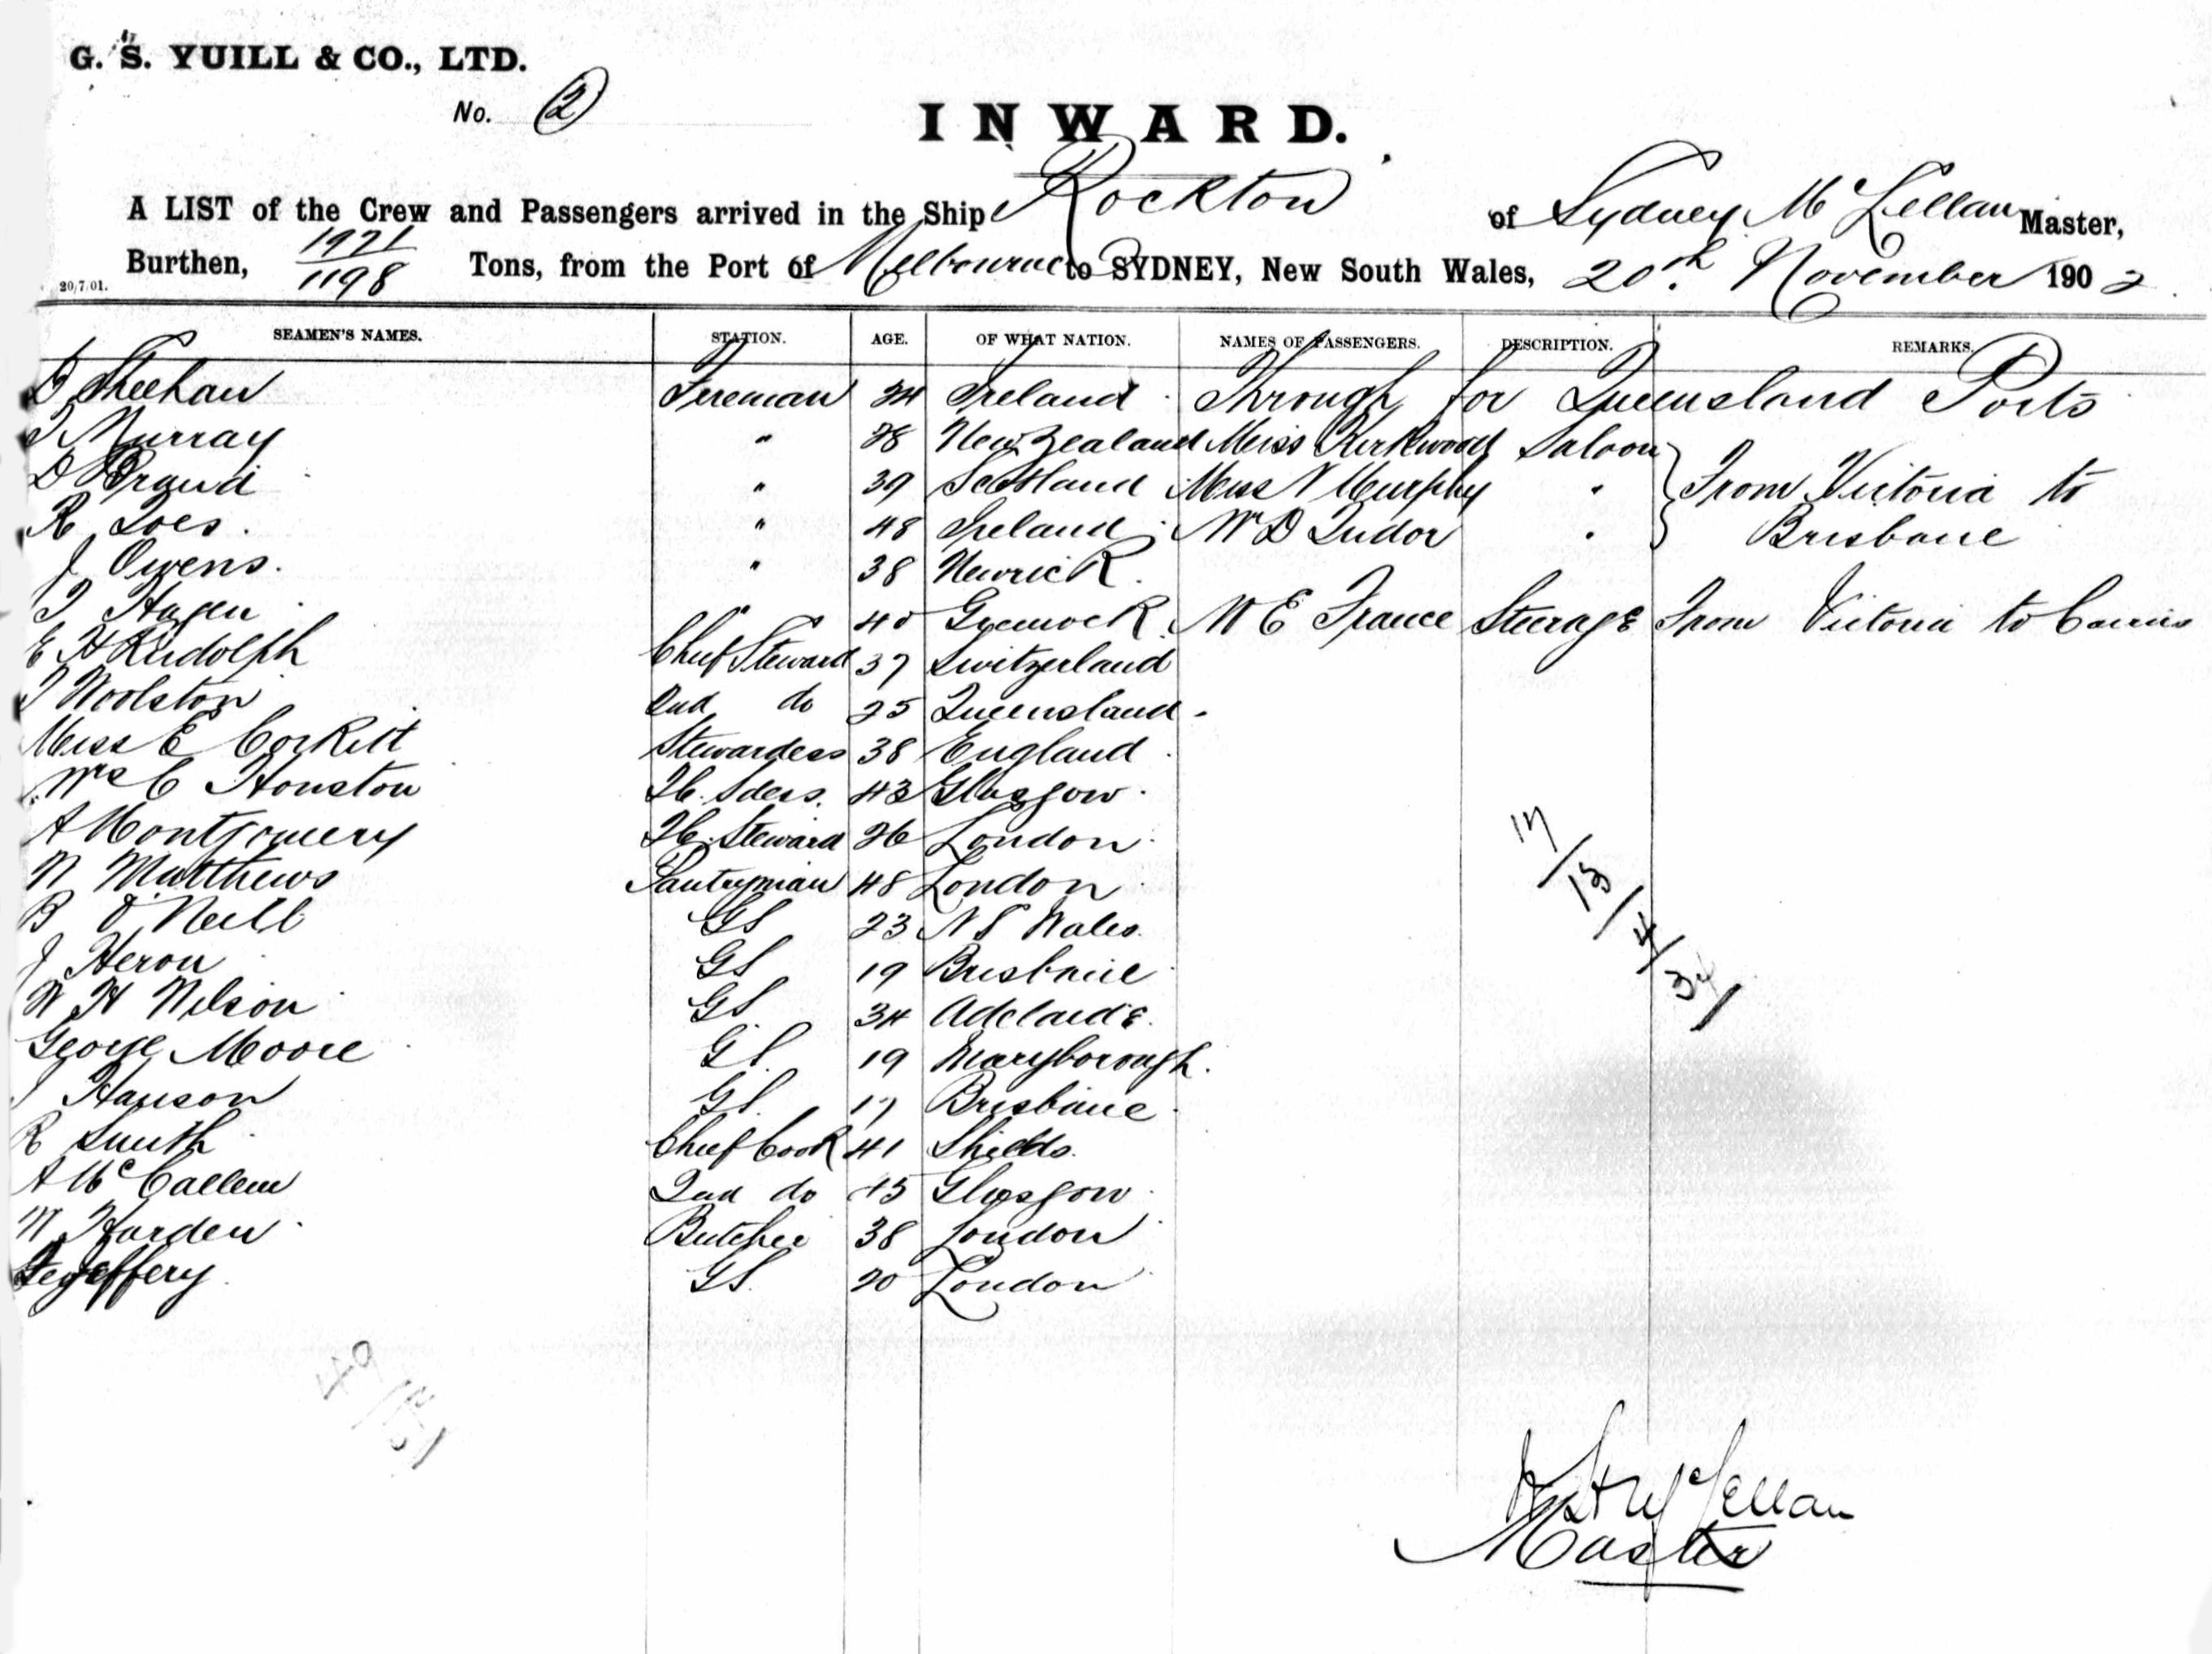 G. S. YUILL & CO., LTD.
No. 2
INWARD.
A LIST of the Crew and Passengers arrived in the Ship Rockton of Sydney McLellan Master,
Burthen, 1971/1198 Tons, from the Port of Melbourne to SYDNEY, New South Wales, 20th November 1902
20/7/01.
SEAMEN'S NAMES. STATION. AGE. OF WHAT NATION. NAMES OF PASSENGERS. DESCRIPTION. REMARKS.
D Sheehan Fireman 24 Ireland Through for Queensland Ports
Murray " 28 New Zealand Miss Kirkwood Saloon
D " 39 Scotland Miss N Murphy " From Victoria to
R " 48 Ireland W D Tudor " Brisbane
J Owens. " 38
Hagen " 40 Greenock W E France Steerage From Victoria to Cairns
E H Rudolph Chief Steward 37 Switzerland
Woolston 2nd do 25 Queensland
Miss E Corkitt Stewardess 38 England
Mrs C Houston 43 Glasgow
A Montgomery Steward 26 London
W Matthews Pantryman 48 London
B O'Neill GS 23 N S Wales
J Heron GS 19 Brisbane
W H Wilson GS 34 Adelaide
George Moore GS 19 Maryborough
Hanson GS 17 Brisbane
R Smith Chief Cook 41 Shields
A McCallum 2nd do 45 Glasgow
W Harden Butcher 38 London
Jeffery GS 20 London
17/13/4/34/
49/
McLellan
Master